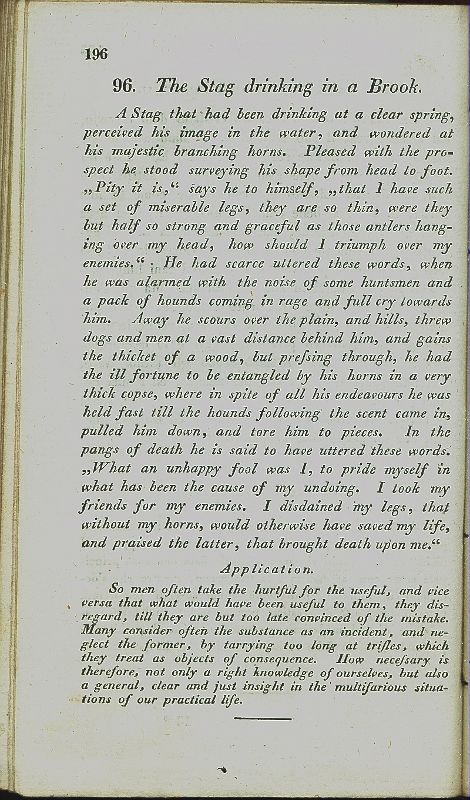 196
96. The Stag drinking in a Brook.
A Stag that had been drinking at a clear spring,
perceived his image in the water, and wondered at
his majestic branching horns. Pleased with the pro-
spect he stood surveying his shape from head to foot.
„Pity it is,“ says he to himself, „that I have such
a set of miserable legs, they are so thin, were they
but half so strong and graceful as those antlers hang-
ing over my head, how should I triumph over my
enemies.“ . He had scarce uttered these words, when
he was alarmed with the noise of some huntsmen and
a pack of hounds coming in rage and full cry towards
him. Away he scours over the plain, and hills, threw
dogs and men at a vast distance behind him, and gains
the thicket of a wood, but preſsing through, he had
the ill fortune to be entangled by his horns in a very
thick copse, where in spite of all his endeavours he was
held fast till the hounds following the scent came in,
pulled him down, and tore him to pieces. In the
pangs of death he is said to have uttered these words.
„What an unhappy fool was I, to pride myself in
what has been the cause of my undoing. I took my
friends for my enemies. I disdained my legs, that
without my horns, would otherwise have saved my life,
and praised the latter, that brought death upon me.“
Application.
So men often take the hurtful for the useful, and vice
versa that what would have been useful to them, they dis-
regard, till they are but too late convinced of the mistake.
Many consider often the substance as an incident, and ne-
glect the former, by tarrying too long at trifles, which
they treat as objects of consequence. How neceſsary is
therefore, not only a right knowledge of ourselves, but also
a general, clear and just insight in the multifarious situa-
tions of our practical life.